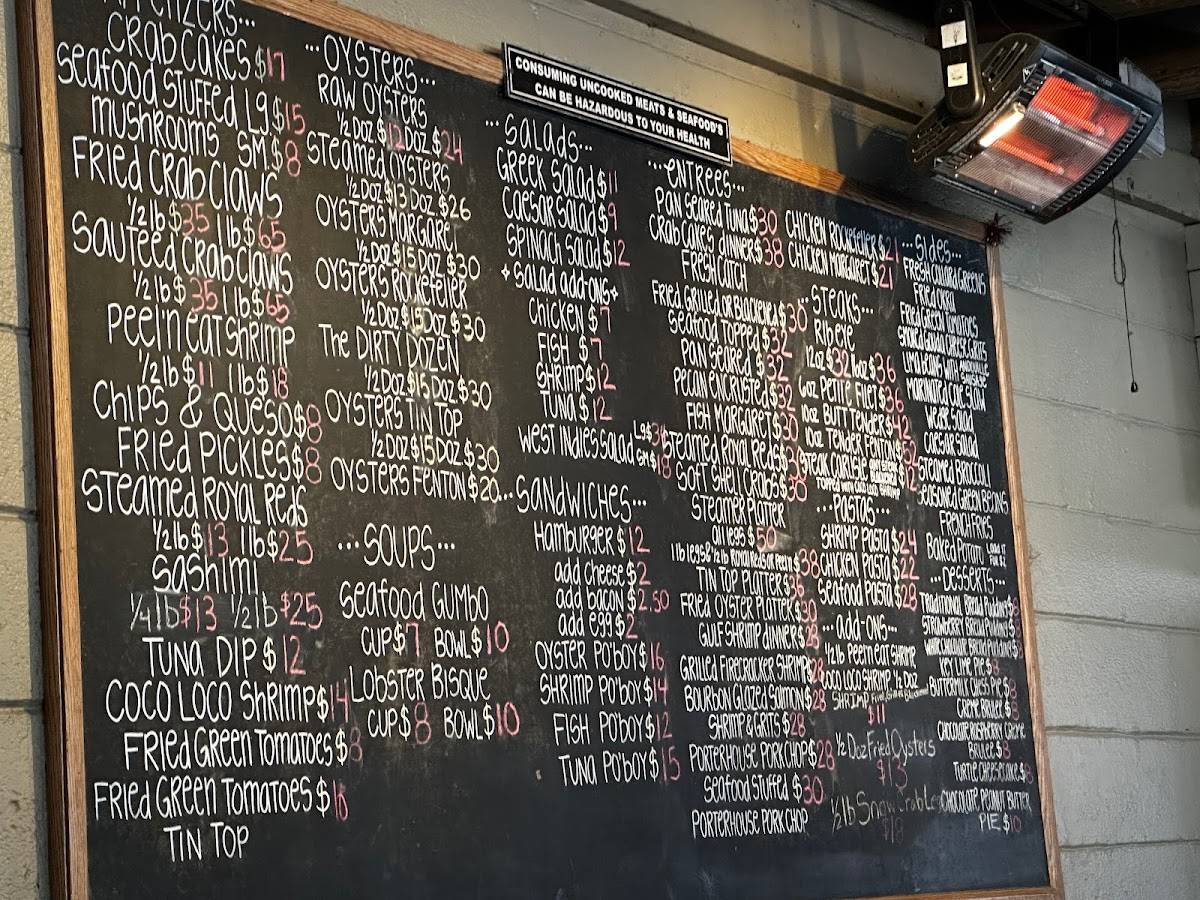 APPETIZERS...
CRAB CAKES $17
SEAFOOD STUFFED LG $15
MUSHROOMS SM $8
FRIED CRAB CLAWS
1/2 lb $35 1 lb $65
SAUTEED CRAB CLAWS
1/2 lb $35 1 lb $65
PEEL'N EAT SHRIMP
1/2 lb $11 1 lb $18
CHIPS & QUESO $8
FRIED PICKLES $8
STEAMED ROYAL REDS
1/2 lb $13 1 lb $25
SASHIMI
1/4 lb $13 1/2 lb $25
TUNA DIP $12
COCO LOCO SHRIMP $14
FRIED GREEN TOMATOES $8
FRIED GREEN TOMATOES $16
TIN TOP
...OYSTERS...
RAW OYSTERS
1/2 DOZ $12 DOZ $24
STEAMED OYSTERS
1/2 DOZ $13 DOZ $26
OYSTERS MORGARET
1/2 DOZ $15 DOZ $30
OYSTERS ROCKEFELLER
1/2 DOZ $15 DOZ $30
THE DIRTY DOZEN
1/2 DOZ $15 DOZ $30
OYSTERS TIN TOP
1/2 DOZ $15 DOZ $30
OYSTERS FENTON $20
...SOUPS...
SEAFOOD GUMBO
CUP $7 BOWL $10
LOBSTER BISQUE
CUP $8 BOWL $10
CONSUMING UNCOOKED MEATS & SEAFOOD'S
CAN BE HAZARDOUS TO YOUR HEALTH
...SALADS...
GREEK SALAD $11
CAESAR SALAD $9
SPINACH SALAD $12
+ SALAD ADD-ONS +
CHICKEN $7
FISH $7
SHRIMP $12
TUNA $12
WEST INDIES SALAD LG $36
SM $18
...SANDWICHES...
HAMBURGER $12
ADD CHEESE $2
ADD BACON $2.50
ADD EGG $2
OYSTER PO'BOY $16
SHRIMP PO'BOY $14
FISH PO'BOY $12
TUNA PO'BOY $15
...ENTREES...
PAN SEARED TUNA $30
CRAB CAKES DINNER $38
FRESH CATCH
FRIED, GRILLED OR BLACKENED $30
SEAFOOD TOPPED $32
PAN SEARED $32
PECAN ENCRUSTED $32
FISH MARGARET $30
STEAMED ROYAL REDS
SOFT SHELL CRABS $30
STEAMER PLATTER
ALL LEGS $50
1 lb LEGS & 1/2 lb ROYAL REDS OR PEEL'N $38
TIN TOP PLATTER $36
FRIED OYSTER PLATTER $30
GULF SHRIMP DINNER $28
GRILLED FIRECRACKER SHRIMP $28
BOURBON GLAZED SALMON $28
SHRIMP & GRITS $28
PORTERHOUSE PORK CHOP $28
SEAFOOD STUFFED $30
PORTERHOUSE PORK CHOP
CHICKEN ROCKEFELLER $21
CHICKEN MARGARET $21
...STEAKS...
RIBEYE
12oz $32 16oz $36
6oz PETITE FILET $36
10oz BUTT TENDER $42
10oz TENDER FENTON $52
STEAK CARLISLE
TOPPED WITH
...PASTAS...
SHRIMP PASTA $24
CHICKEN PASTA $22
SEAFOOD PASTA $28
...ADD-ONS...
1/2 lb PEEL'N EAT SHRIMP
COCO LOCO SHRIMP 1/2 DOZ
SHRIMP
$11
1/2 Doz Fried Oysters
$13
1/2 lb Snow Crab Legs
$18
...SIDES...
FRESH COLLARD GREENS
FRIED OKRA
FRIED GREEN TOMATOES
SMOKED GOUDA CHEESE GRITS
LIMA BEANS WITH ANDOUILLE SAUSAGE
MARINATED COLE SLAW
WEDGE SALAD
CAESAR SALAD
STEAMED BROCCOLI
SEASONED GREEN BEANS
FRENCH FRIES
BAKED POTATO LOAD IT FOR $2
...DESSERTS...
TRADITIONAL BREAD PUDDING $8
STRAWBERRY BREAD PUDDING $8
WHITE CHOCOLATE BREAD PUDDING $8
KEY LIME PIE $8
BUTTERMILK CHESS PIE $8
CREME BRULEE $8
CHOCOLATE RASPBERRY CREME
BRULEE $8
TURTLE CHEESECAKE $8
CHOCOLATE PEANUT BUTTER
PIE $10